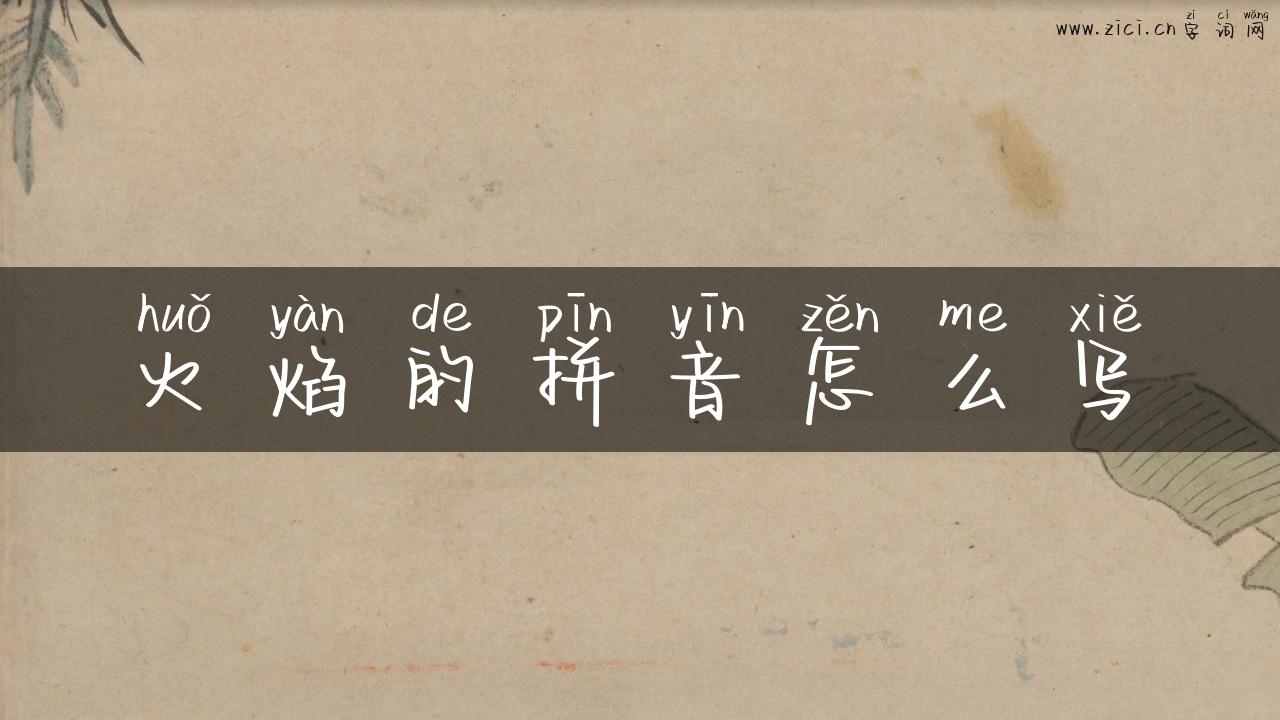 zì cí wǎng
www.zici.cn 字 词 网
huǒ yàn de pīn yīn zěn me xiě
火 焰 的 拼 音 怎 么 写